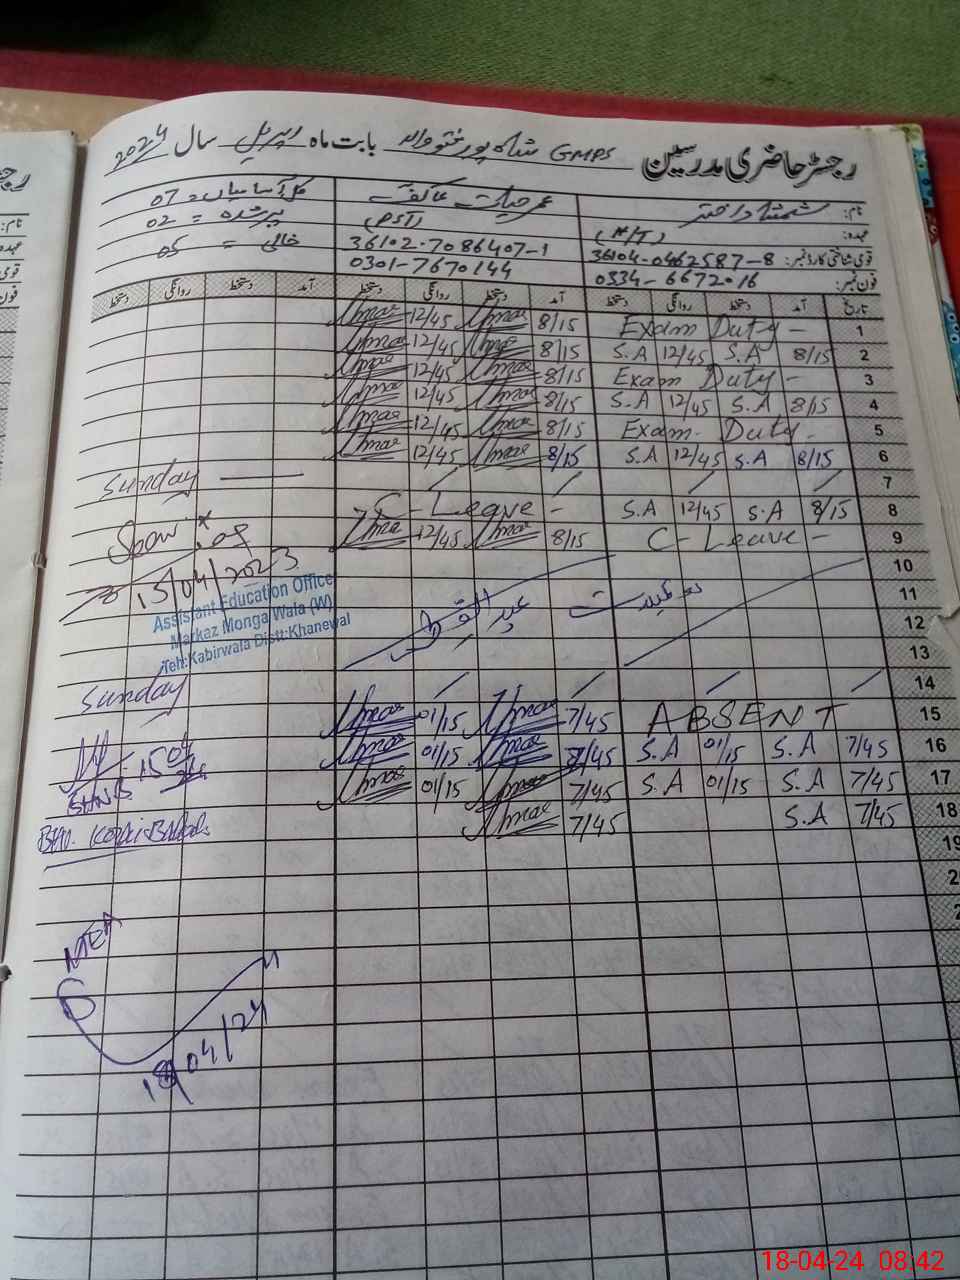 رجسٹر حاضری مدرسین GMPS شاہ پور بابت ماہ اپریل سال 2024
نام: شمشاد اختر عمر حیات عاکف کل آسامیاں = 07
عہدہ: (H/T) پر شدہ = 02
قومی شناختی کارڈ نمبر: 36104-0462587-8 36102-7086407-1 خالی = 05
فون نمبر: 0334-6672016 0301-7670144
تاریخ آمد دستخط روانگی دستخط آمد دستخط روانگی دستخط آمد دستخط روانگی دستخط
1 Exam Duty - 8/15 Umar 12/45 Umar
2 8/15 S.A 12/45 S.A 8/15 Umar 12/45 Umar
3 Exam Duty - 8/15 Umar 12/45 Umar
4 8/15 S.A 12/45 S.A 8/15 Umar 12/45 Umar
5 Exam Duty - 8/15 Umar 12/45 Umar
6 8/15 S.A 12/45 S.A 8/15 Umar 12/45 Umar
7 Sunday
8 8/15 S.A 12/45 S.A C-Leave -
9 C-Leave - 8/15 Umar 12/45 Umar
10
11 تعطیلات عید الفطر
12
13
15/04/2023
Assistant Education Office
Markaz Monga Wala (W)
Teh:Kabirwala Distt:Khanewal
14 Sunday
15 ABSENT 7/45 Umar 01/15 Umar
16 7/45 S.A 01/15 S.A 8/45 Umar 01/15 Umar
17 7/45 S.A 01/15 S.A 7/45 Umar 01/15 Umar
18 7/45 S.A 7/45 Umar
19
MEA
18/04/24
18-04-24 08:42